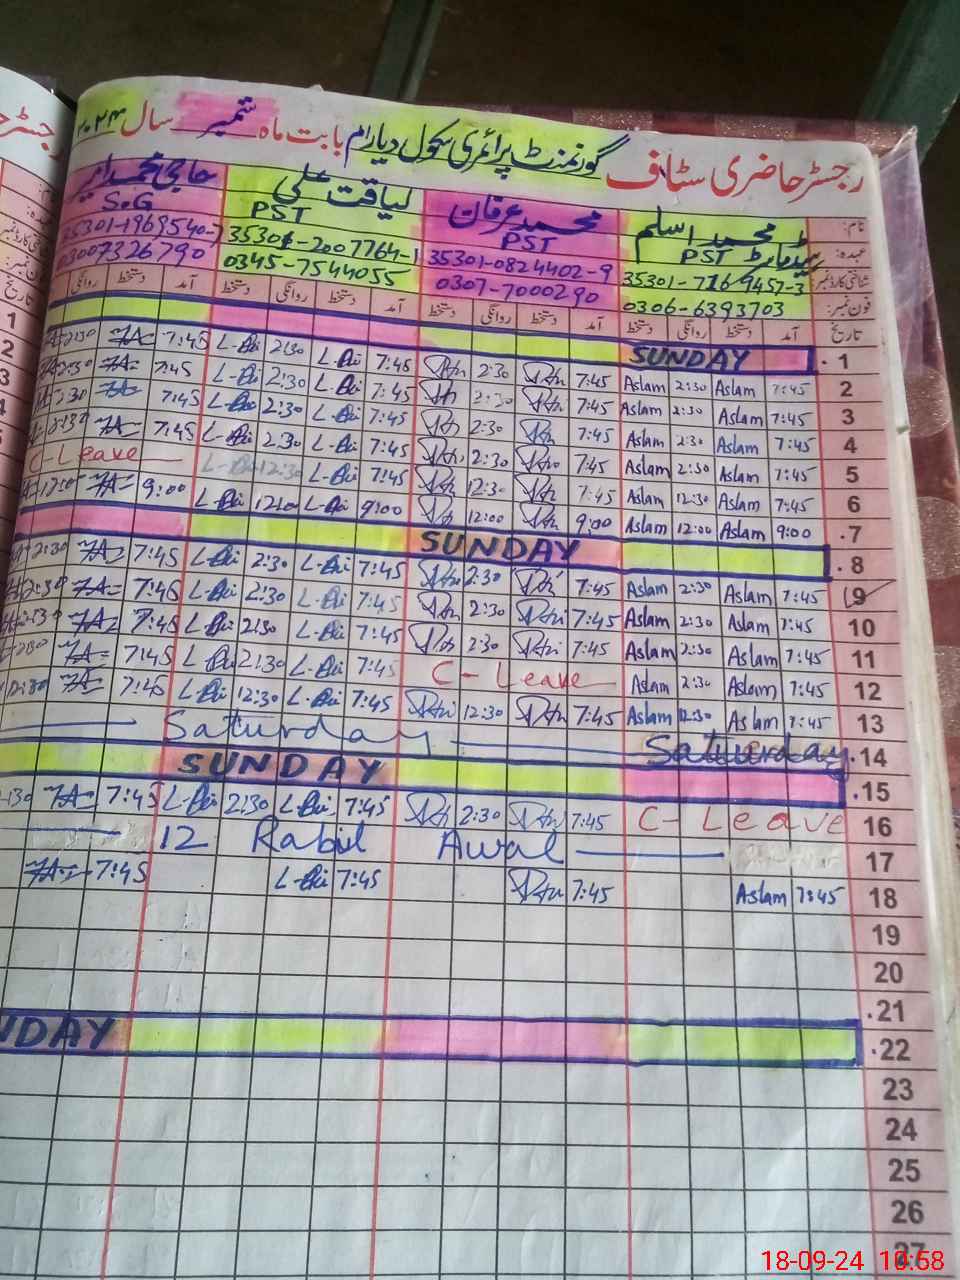 رجسٹر حاضری سٹاف گورنمنٹ پرائمری سکول دیارام بابت ماہ ستمبر سال ۲۰۲۴
نام: محمد اسلم محمد عرفان لیاقت علی حاجی محمد امیر
عہدہ: ہیڈ ماسٹر PST PST PST S.G
شناختی کارڈ نمبر 35301-7169457-3 35301-0824402-9 35301-2007764-1 35301-1969540-7
فون نمبر: 0306-6393703 0307-7000290 0345-7544055 03007326790
تاریخ آمد دستخط روانگی دستخط آمد دستخط روانگی دستخط آمد دستخط روانگی دستخط آمد دستخط روانگی
SUNDAY .1
2:30 7:45 L-Ali 2:30 L-Ali 7:45 2:30 7:45 Aslam 2:30 Aslam 7:45 2
2:30 7:45 L-Ali 2:30 L-Ali 7:45 2:30 7:45 Aslam 2:30 Aslam 7:45 3
2:30 7:45 L-Ali 2:30 L-Ali 7:45 2:30 7:45 Aslam 2:30 Aslam 7:45 4
2:30 7:45 L-Ali 2:30 L-Ali 7:45 2:30 7:45 Aslam 2:30 Aslam 7:45 5
C-Leave L-Ali 12:30 L-Ali 7:45 12:30 7:45 Aslam 12:30 Aslam 7:45 6
12:00 9:00 L-Ali 12:00 L-Ali 9:00 12:00 9:00 Aslam 12:00 Aslam 9:00 .7
SUNDAY .8
2:30 7:45 L-Ali 2:30 L-Ali 7:45 2:30 7:45 Aslam 2:30 Aslam 7:45 9
2:30 7:45 L-Ali 2:30 L-Ali 7:45 2:30 7:45 Aslam 2:30 Aslam 7:45 10
2:30 7:45 L-Ali 2:30 L-Ali 7:45 2:30 7:45 Aslam 2:30 Aslam 7:45 11
2:30 7:45 L-Ali 2:30 L-Ali 7:45 C-Leave Aslam 2:30 Aslam 7:45 12
12:30 7:45 L-Ali 12:30 L-Ali 7:45 12:30 7:45 Aslam 12:30 Aslam 7:45 13
Saturday Saturday .14
SUNDAY .15
2:30 7:45 L-Ali 2:30 L-Ali 7:45 2:30 7:45 C-Leave 16
12 Rabiul Awal 17
7:45 L-Ali 7:45 7:45 Aslam 7:45 18
19
20
.21
SUNDAY .22
23
24
25
26
27
18-09-24 10:58